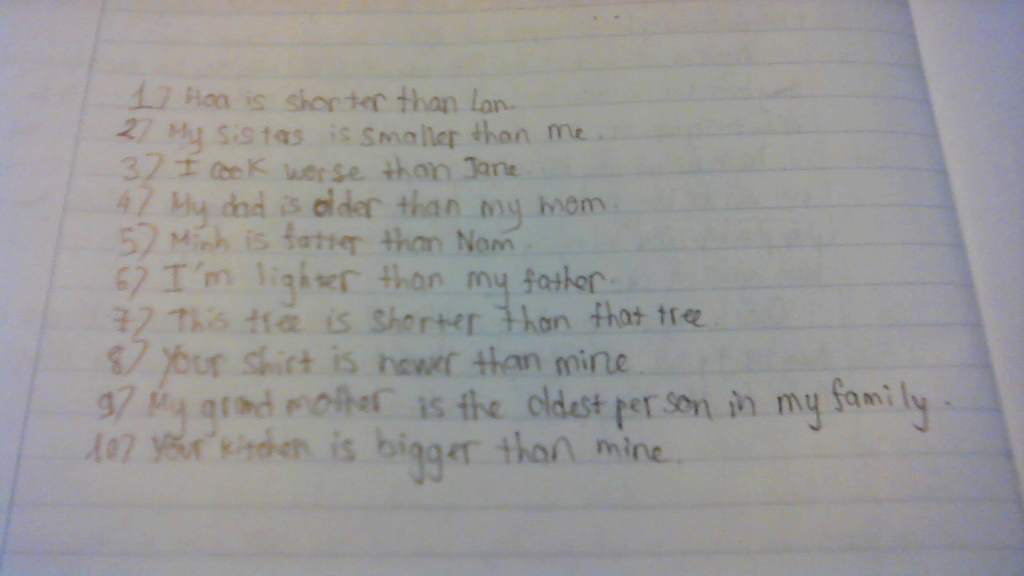 1) Hoa is shorter than Lan.
2) My sistas is smaller than me.
3) I cook worse than Jane
4) My dad is older than my mom.
5) Minh is fatter than Nam.
6) I'm lighter than my father.
7) This tree is shorter than that tree.
8) Your shirt is newer than mine.
9) My grandmother is the oldest person in my family.
10) Your kitchen is bigger than mine.